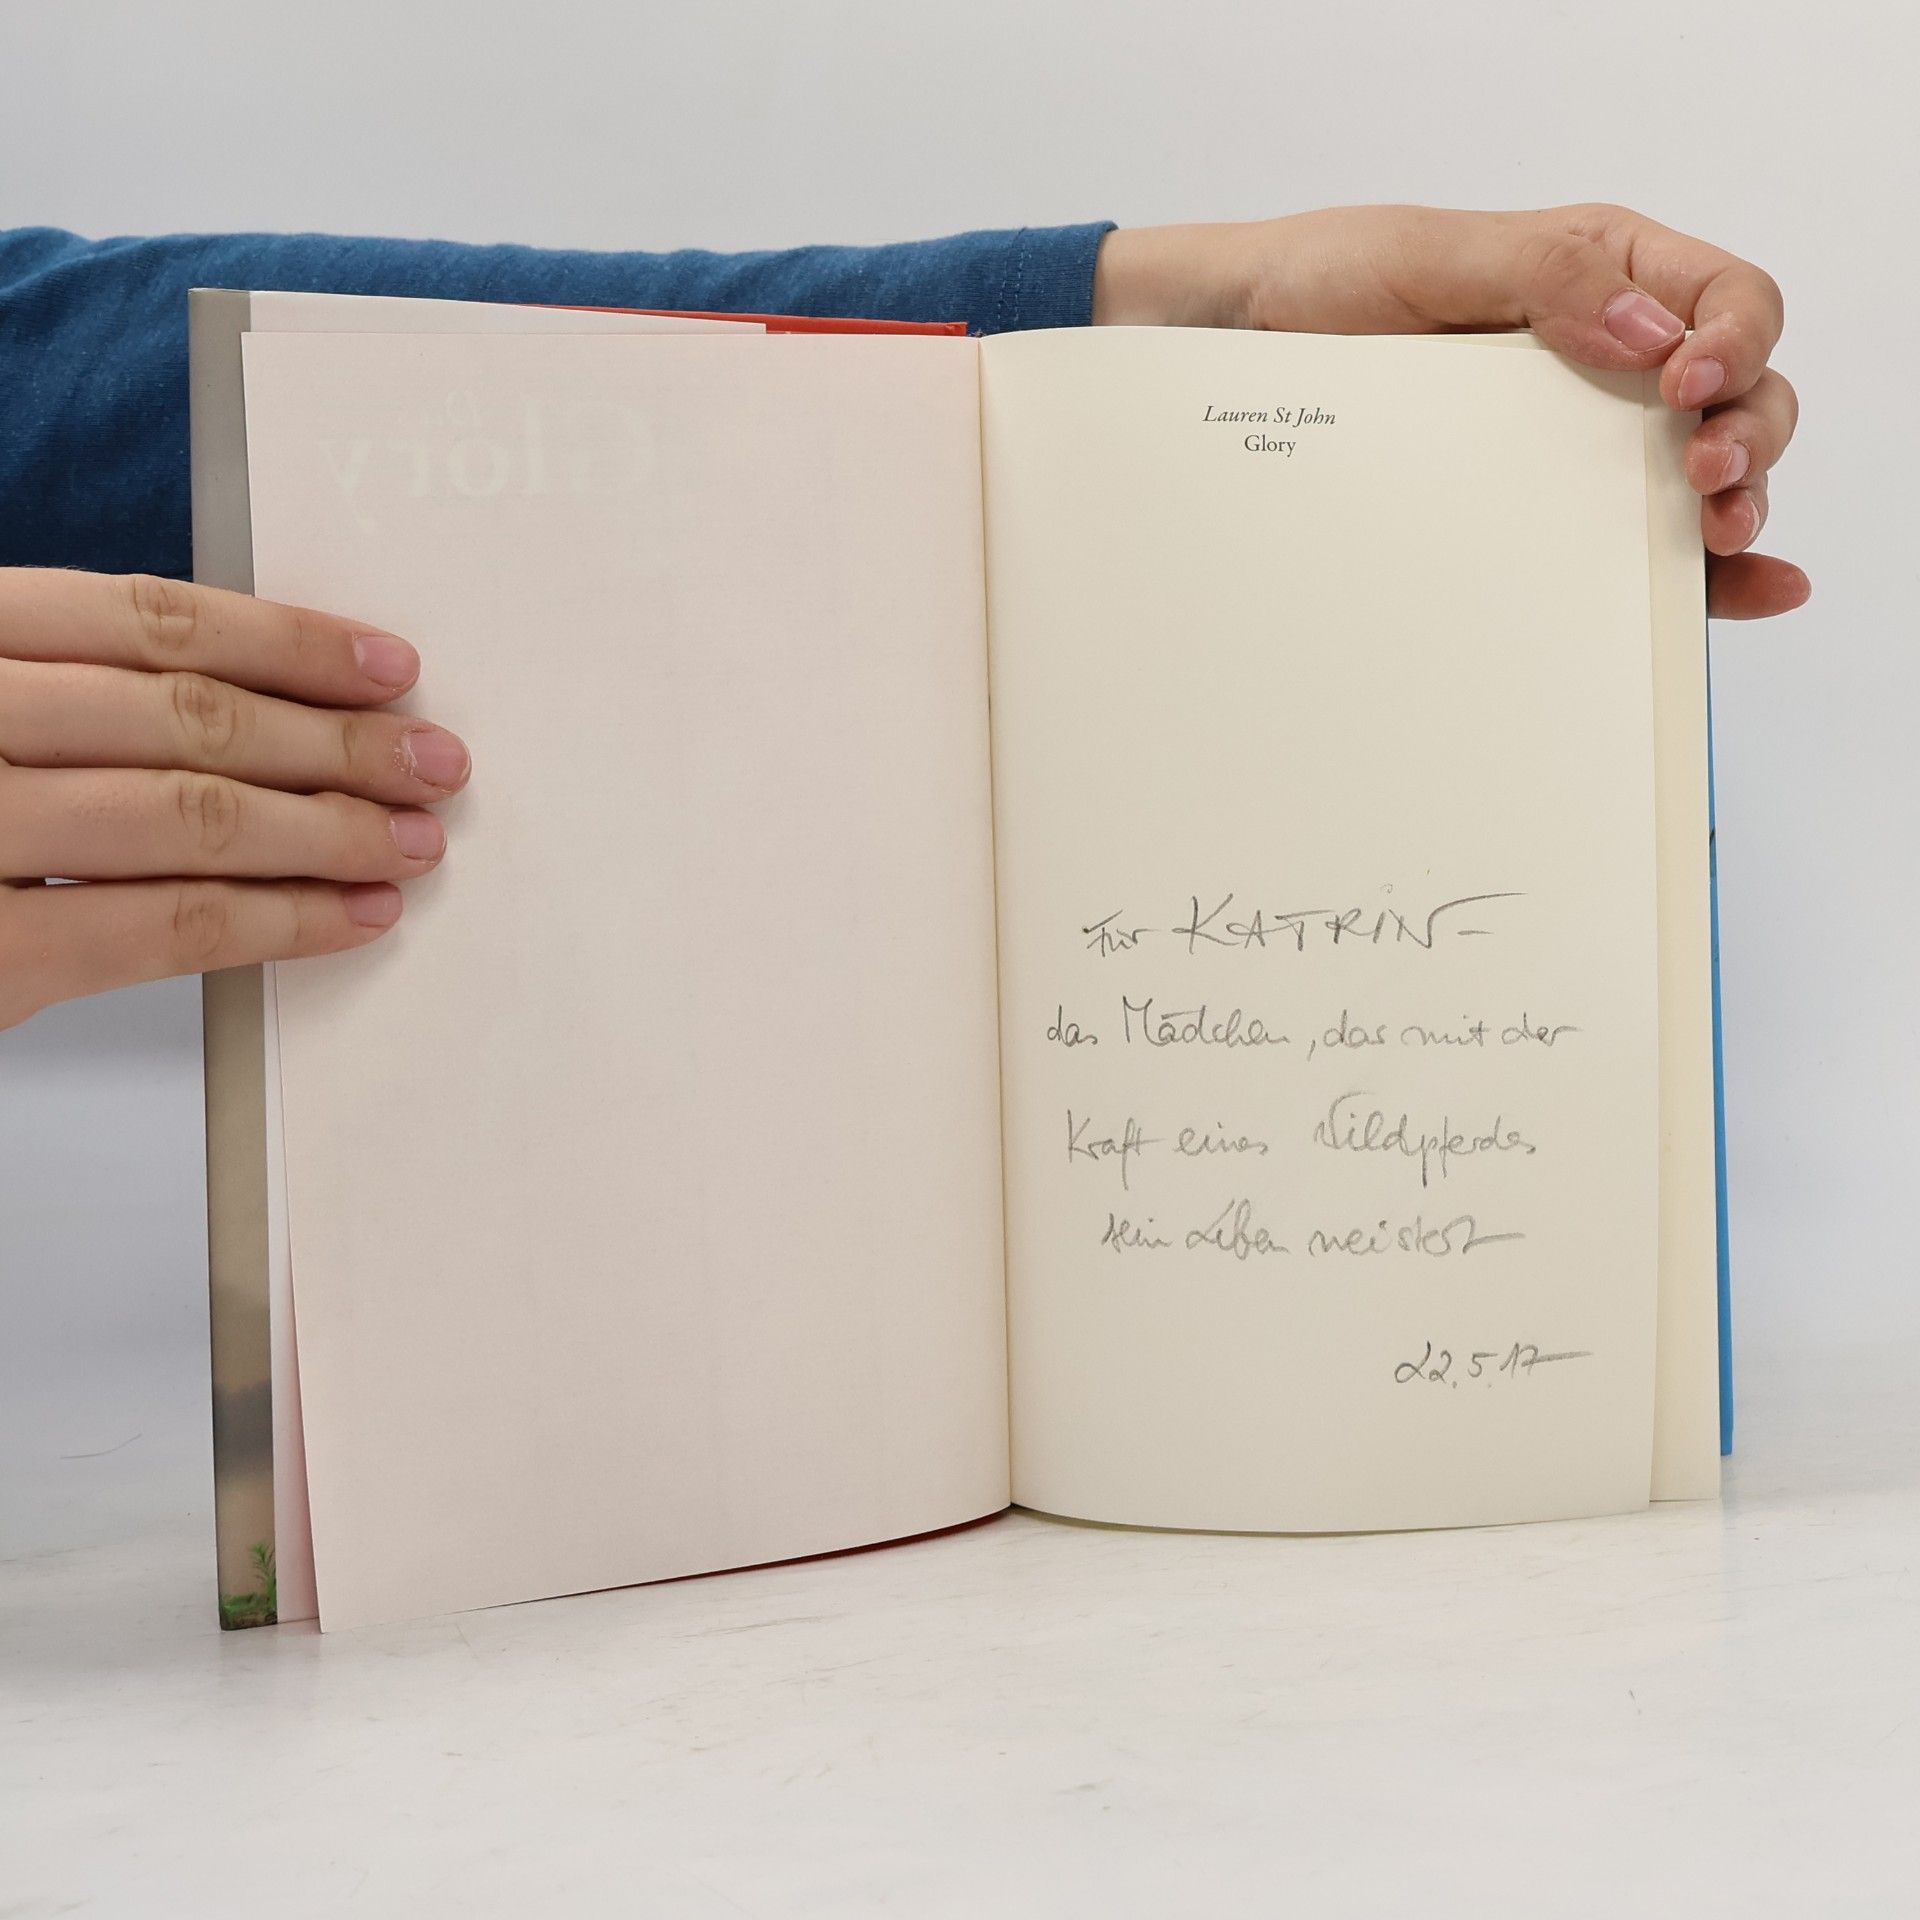 Lauren St John
Glory
Für KATRIN –
das Mädchen, das mit der
Kraft eines Wildpferdes
sein Leben meistert
22.5.17